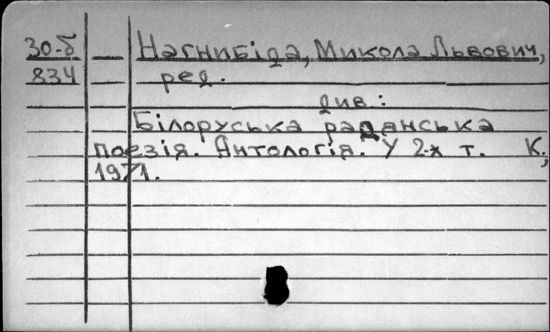 30-б — Нагнибіда, Микола Львович,
834 ред.
див.:
Білоруська радянська
поезія. Антологія. У 2-х т. К.,
1971.